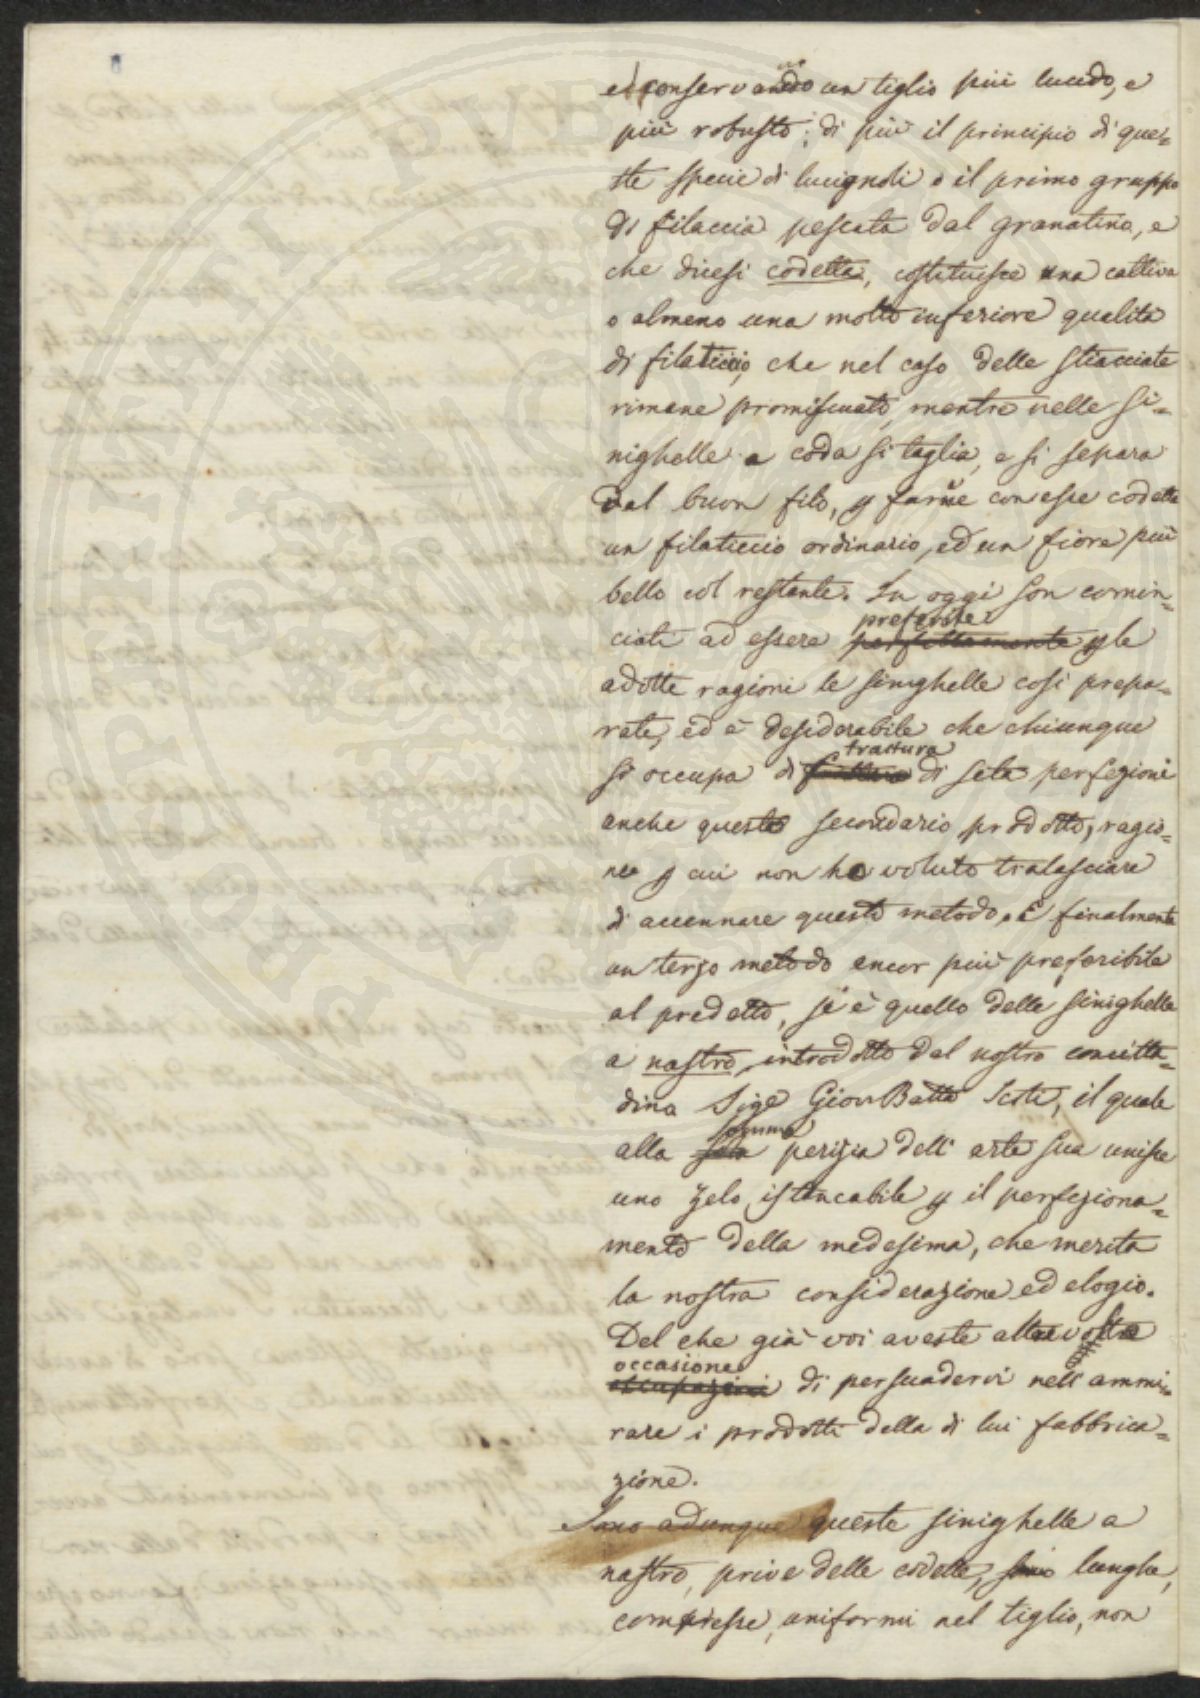 e conservando un tiglio più lucido, e
più robusto; di più il principio di que=
ste specie di lucignoli o il primo gruppo
di filaccia pescata dal granatino, e
che dicesi codetta, costituisce una cattiva
o almeno una molto inferiore qualità
di filaticcio, che nel caso delle stiacciate
rimane promiscuato, mentre nelle si=
nighelle a coda si taglia, e si separa
dal buon filo, p farne con esse codette
un filaticcio ordinario, ed un fiore più
bello col restante. In oggi son comin=
ciati ad essere preferite perfettamente p le
adotte ragioni le sinighelle così prepa=
rate, ed è desiderabile che chiunque
si occupa di trattura di seta perfezioni
anche questo secondario prodotto, ragio=
ne p cui non ho voluto tralasciare
di accennare questo metodo. E finalmente
un terzo metodo ancor più preferibile
al predetto, si è quello delle sinighelle
a nastro, introdotto dal nostro concitta=
dino Sigr Giov Batta Scoti, il quale
alla somma perizia dell' arte sua unisce
uno zelo istancabile p il perfeziona=
mento della medesima, che merita
la nostra considerazione ed elogio.
Del che già voi aveste altre volte
occasione occupazioni di persuadervi nell' ammi=
rare i prodotti della di lui fabbrica=
zione.
Sono adunque queste sinighelle a
nastro, prive delle codette, sono lunghe,
compresse, uniformi nel tiglio, non